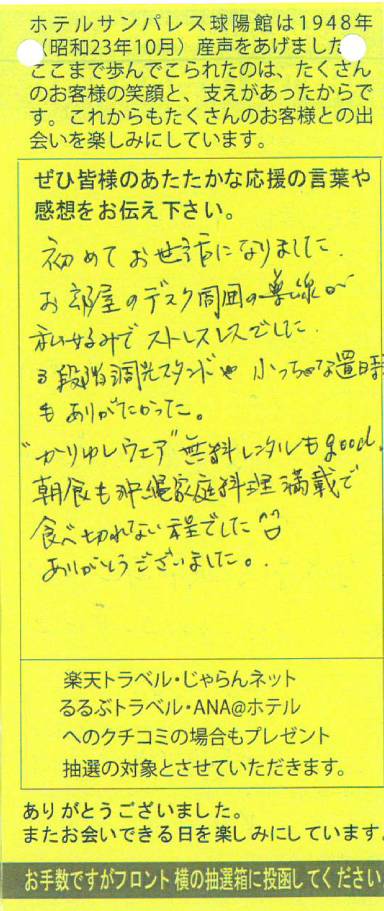 ホテルサンパレス球陽館は1948年
（昭和23年10月）産声をあげました
ここまで歩んでこられたのは、たくさん
のお客様の笑顔と、支えがあったからで
す。これからもたくさんのお客様との出
会いを楽しみにしています。
ぜひ皆様のあたたかな応援の言葉や
感想をお伝え下さい。
初めてお世話になりました.
お部屋のデスク周囲の導線が
みでストレスレスでした.
3段階調光スタンドや小っちゃな置時
もありがたかった。
"かりゆしウェア"無料レンタルもgood.
朝食も沖縄家庭料理満載で
食べ切れない程でした
ありがとうございました。.
楽天トラベル・じゃらんネット
るるぶトラベル・ANA@ホテル
へのクチコミの場合もプレゼント
抽選の対象とさせていただきます。
ありがとうございました。
またお会いできる日を楽しみにしています。
お手数ですがフロント横の抽選箱に投函してください